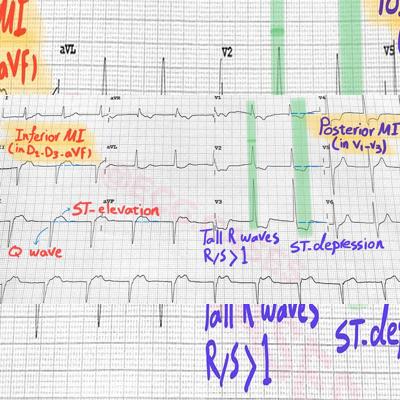 MI
aVF)
aVL
V2
V5
I
aVR
V1
V4
Inferior MI
(in D2-D3-aVF)
Posterior MI
(in V1-V3)
aVL
V2
V5
ST-elevation
aVF
V3
V6
Q wave
Tall R waves
R/S>1
ST-depression
Tall R waves
R/S>1
ST-dep